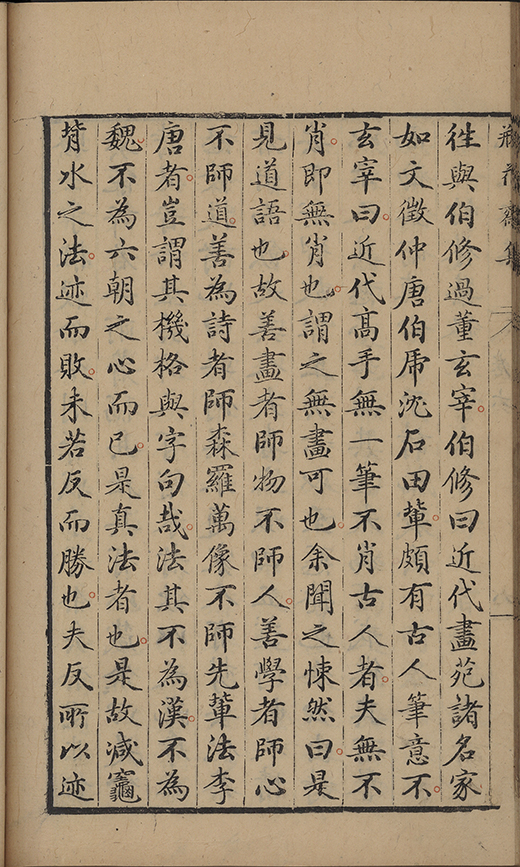 瓶花齋集
徃與伯修過董玄宰伯修曰近代畫苑諸名家
如文徵仲唐伯虎沈石田輩頗有古人筆意不
玄宰曰近代髙手無一筆不肖古人者夫無不
肖即無肖也謂之無畫可也余聞之悚然曰是
見道語也故善畫者師物不師人善學者師心
不師道善為詩者師森羅萬像不師先輩法李
唐者豈謂其機格與字句哉法其不為漢不為
魏不為六朝之心而已是真法者也是故減竈
背水之法迹而敗未若反而勝也夫反所以迹